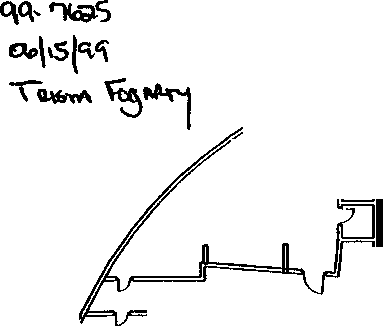 99-7625
06/15/99
Trisha Fogarty